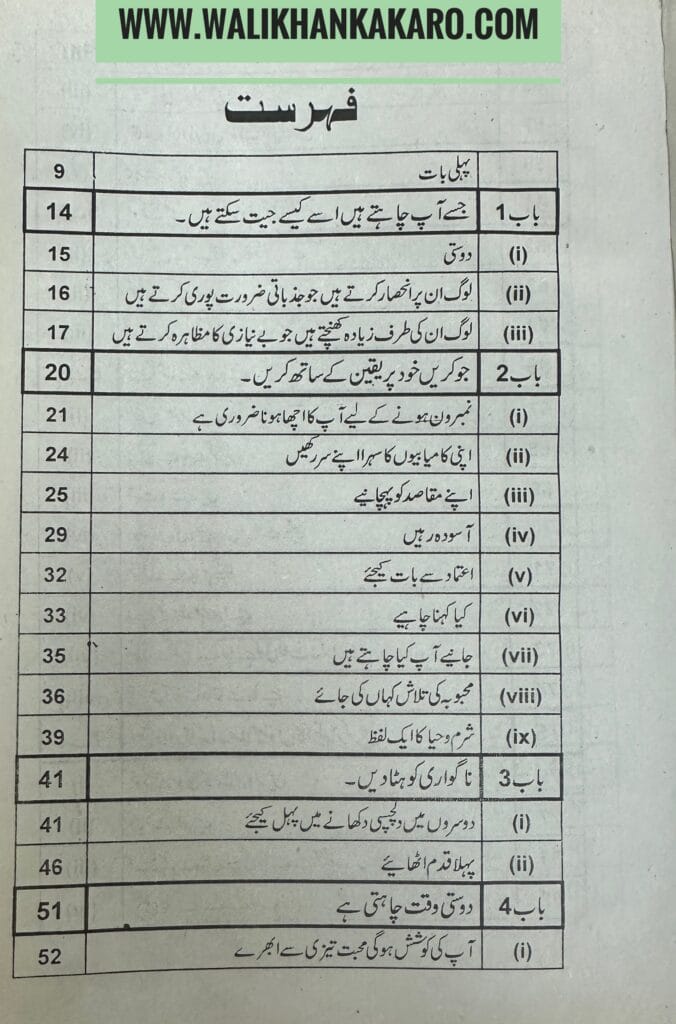 WWW.WALIKHANKAKARO.COM
فہرست
پہلی بات 9
باب 1 جسے آپ چاہتے ہیں اسے کیسے جیت سکتے ہیں۔ 14
(i) دوستی 15
(ii) لوگ ان پر انحصار کرتے ہیں جو جذباتی ضرورت پوری کرتے ہیں 16
(iii) لوگ ان کی طرف زیادہ کھنچتے ہیں جو بے نیازی کا مظاہرہ کرتے ہیں 17
باب 2 جو کریں خود پر یقین کے ساتھ کریں۔ 20
(i) نمبرون ہونے کے لیے آپ کا اچھا ہونا ضروری ہے 21
(ii) اپنی کامیابیوں کا سہرا اپنے سر رکھیں 24
(iii) اپنے مقاصد کو پہچانیے 25
(iv) آسودہ رہیں 29
(v) اعتماد سے بات کیجئے 32
(vi) کیا کہنا چاہیے 33
(vii) جانیے آپ کیا چاہتے ہیں 35
(viii) محبوبہ کی تلاش کہاں کی جائے 36
(ix) شرم و حیا کا ایک لفظ 39
باب 3 ناگواری کو ہٹا دیں۔ 41
(i) دوسروں میں دلچسپی دکھانے میں پہل کیجئے 41
(ii) پہلا قدم اٹھائیے 46
باب 4 دوستی وقت چاہتی ہے 51
(i) آپ کی کوشش ہوگی محبت تیزی سے ابھرے 52